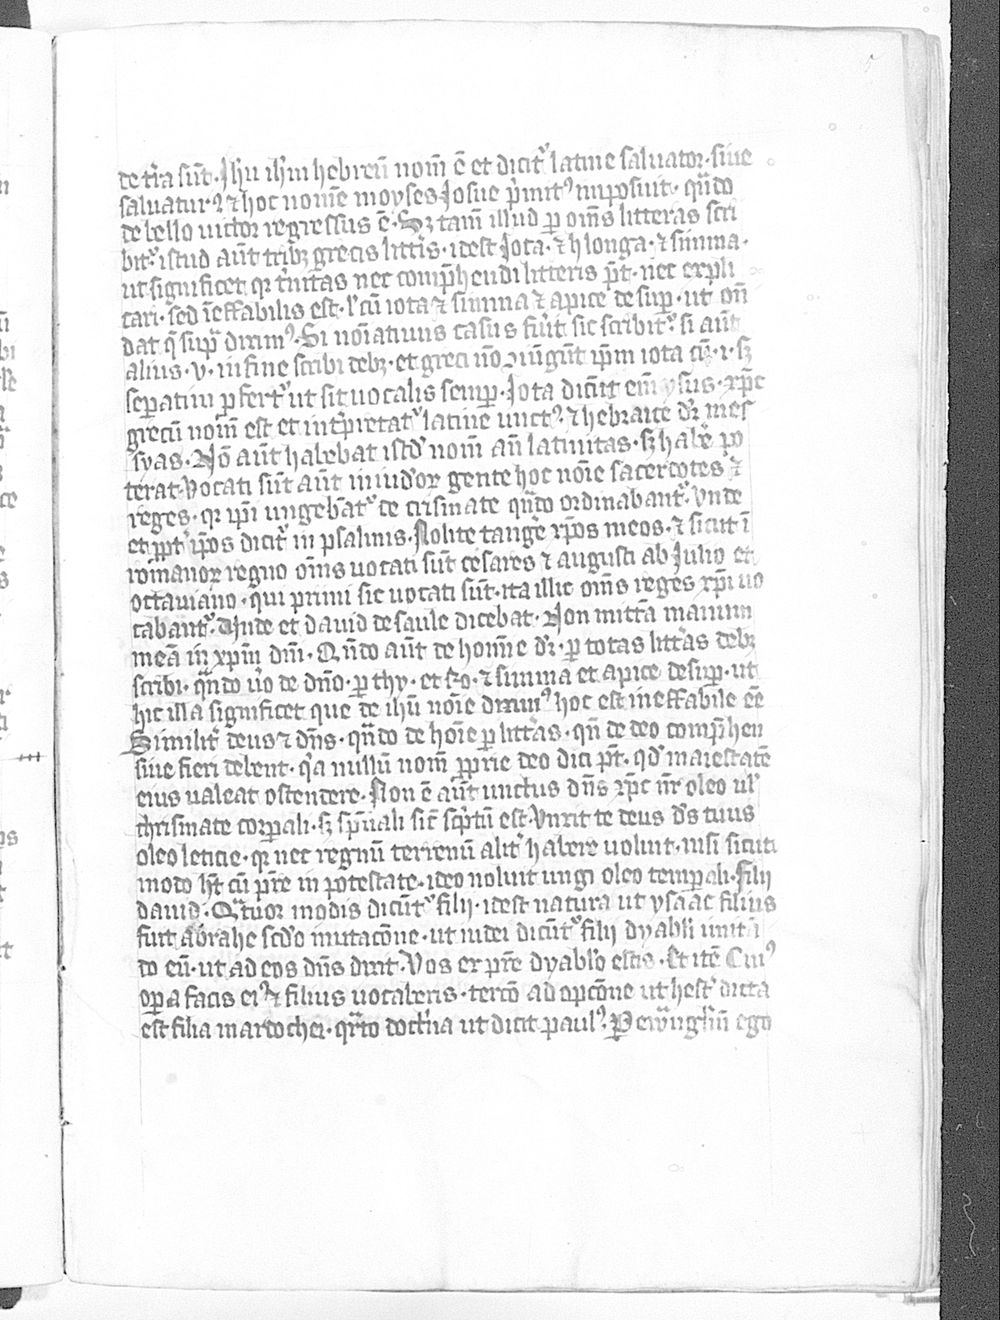 de tr̄a sūt. Jħu ih̄m hebreū nom̄ ē et dicit᷒ latine saluator. siue
saluatur᷒. ⁊ hoc nomīe moyses Josue p̄mit᷒ imposuit. qn̄do
de bello uictor regressus ē. Sꝫ tam̄ illud ꝑ om̄s litteras scri
bit᷒. istud aūt tribꝫ grecis litt̄is. idest Jota. ⁊ h longa. ⁊ simma.
ut significet qꝛ t̄nitas nec comp̄hendi litteris pōt. nec expli
cari. sed īeffabilis est. ł cū iota ⁊ simma ⁊ apice desuꝑ. ut on̄
dat q̄ sup̄ᵃ dixim᷒. Si noīatiuus casus fūit sic scribit᷒. si aūt
alius. v. in fine scribi debꝫ. et greci nō iūgūt ip̄m iota cū. i. sꝫ
seꝑatim ꝓfert᷒ ut sit uocalis semꝑ. Jota dicūt em̄ ysus. xp̄c
grecū nom̄ est et int̄pretat᷒ latine unct᷒. ⁊ hebraice dr̄ mes
syas. Nō aūt habebat istđ nom̄ añ latinitas. sꝫ habe᷒ po
terat. Vocati sūt aūt in iudꝰoꝝ gente hoc noīe sacerdotes ⁊
reges. qꝛ ip̄i ungebāt᷒ de crismate qn̄do ordinabant᷒. Vnde
et ꝓpt̄ ip̄os dicit᷒ in psalmis. Nolite tange᷒ xp̄os meos. ⁊ sicut ī
romanoꝝ regno om̄s uocati sūt cesares ⁊ augusti ab Julio et
octauiano. qui primi sic uocati sūt. ita illic om̄s reges xp̄i uo
cabant᷒. Vnde et dauid de saule dicebat. Non mittā manum
meā in xpm̄ dn̄i. Qn̄do aūt de homīe dr̄. ꝑ totas litt̄as debꝫ
scribi. qn̄do ūo de dn̄o. ꝑ chy. et ro. ⁊ simma et apice desuꝑ. ut
hic illa significet que de ih̄u noīe dixim᷒ hoc est ineffabile eē
Similit᷒ deus ⁊ dn̄s. qn̄do de hoīe ꝑ litt̄as. qn̄ de deo comp̄hen
siue fieri debent. qᵃ nullū nom̄ ꝓprie deo dici pōt. qđ maiestatē
eius ualeat ostendere. Non ē aūt unctus dn̄s xp̄c nr̄ oleo uł
chrismate corꝑali. sꝫ sp̄uali sic̄ sc̄ptū est. Vnxit te deus dꝰs tuus
oleo leticie. qꝛ nec regnū terrenū alit᷒ habere uoluit. nisi sicuti
modo hꝫt cū pr̄e in potestate. ideo noluit ungi oleo temꝑali. filij
dauid. Qᵃtuor modis dicūt᷒ filij. idest natura ut ysaac filius
fuit abrahe. scđo imitacōne. ut iudei dicūt᷒ filij dyaboli imitā
do eū. ut ad eos dn̄s dixit. Vos ex pr̄e dyabolo estis. Et itē Cui᷒
oꝑa facis ei᷒ ⁊ filius uocaberis. tercō adopcōne ut hest᷒ dicta
est filia mardochei. qrͣto doct̄na ut dicit paul᷒. Per ewāgliū ego